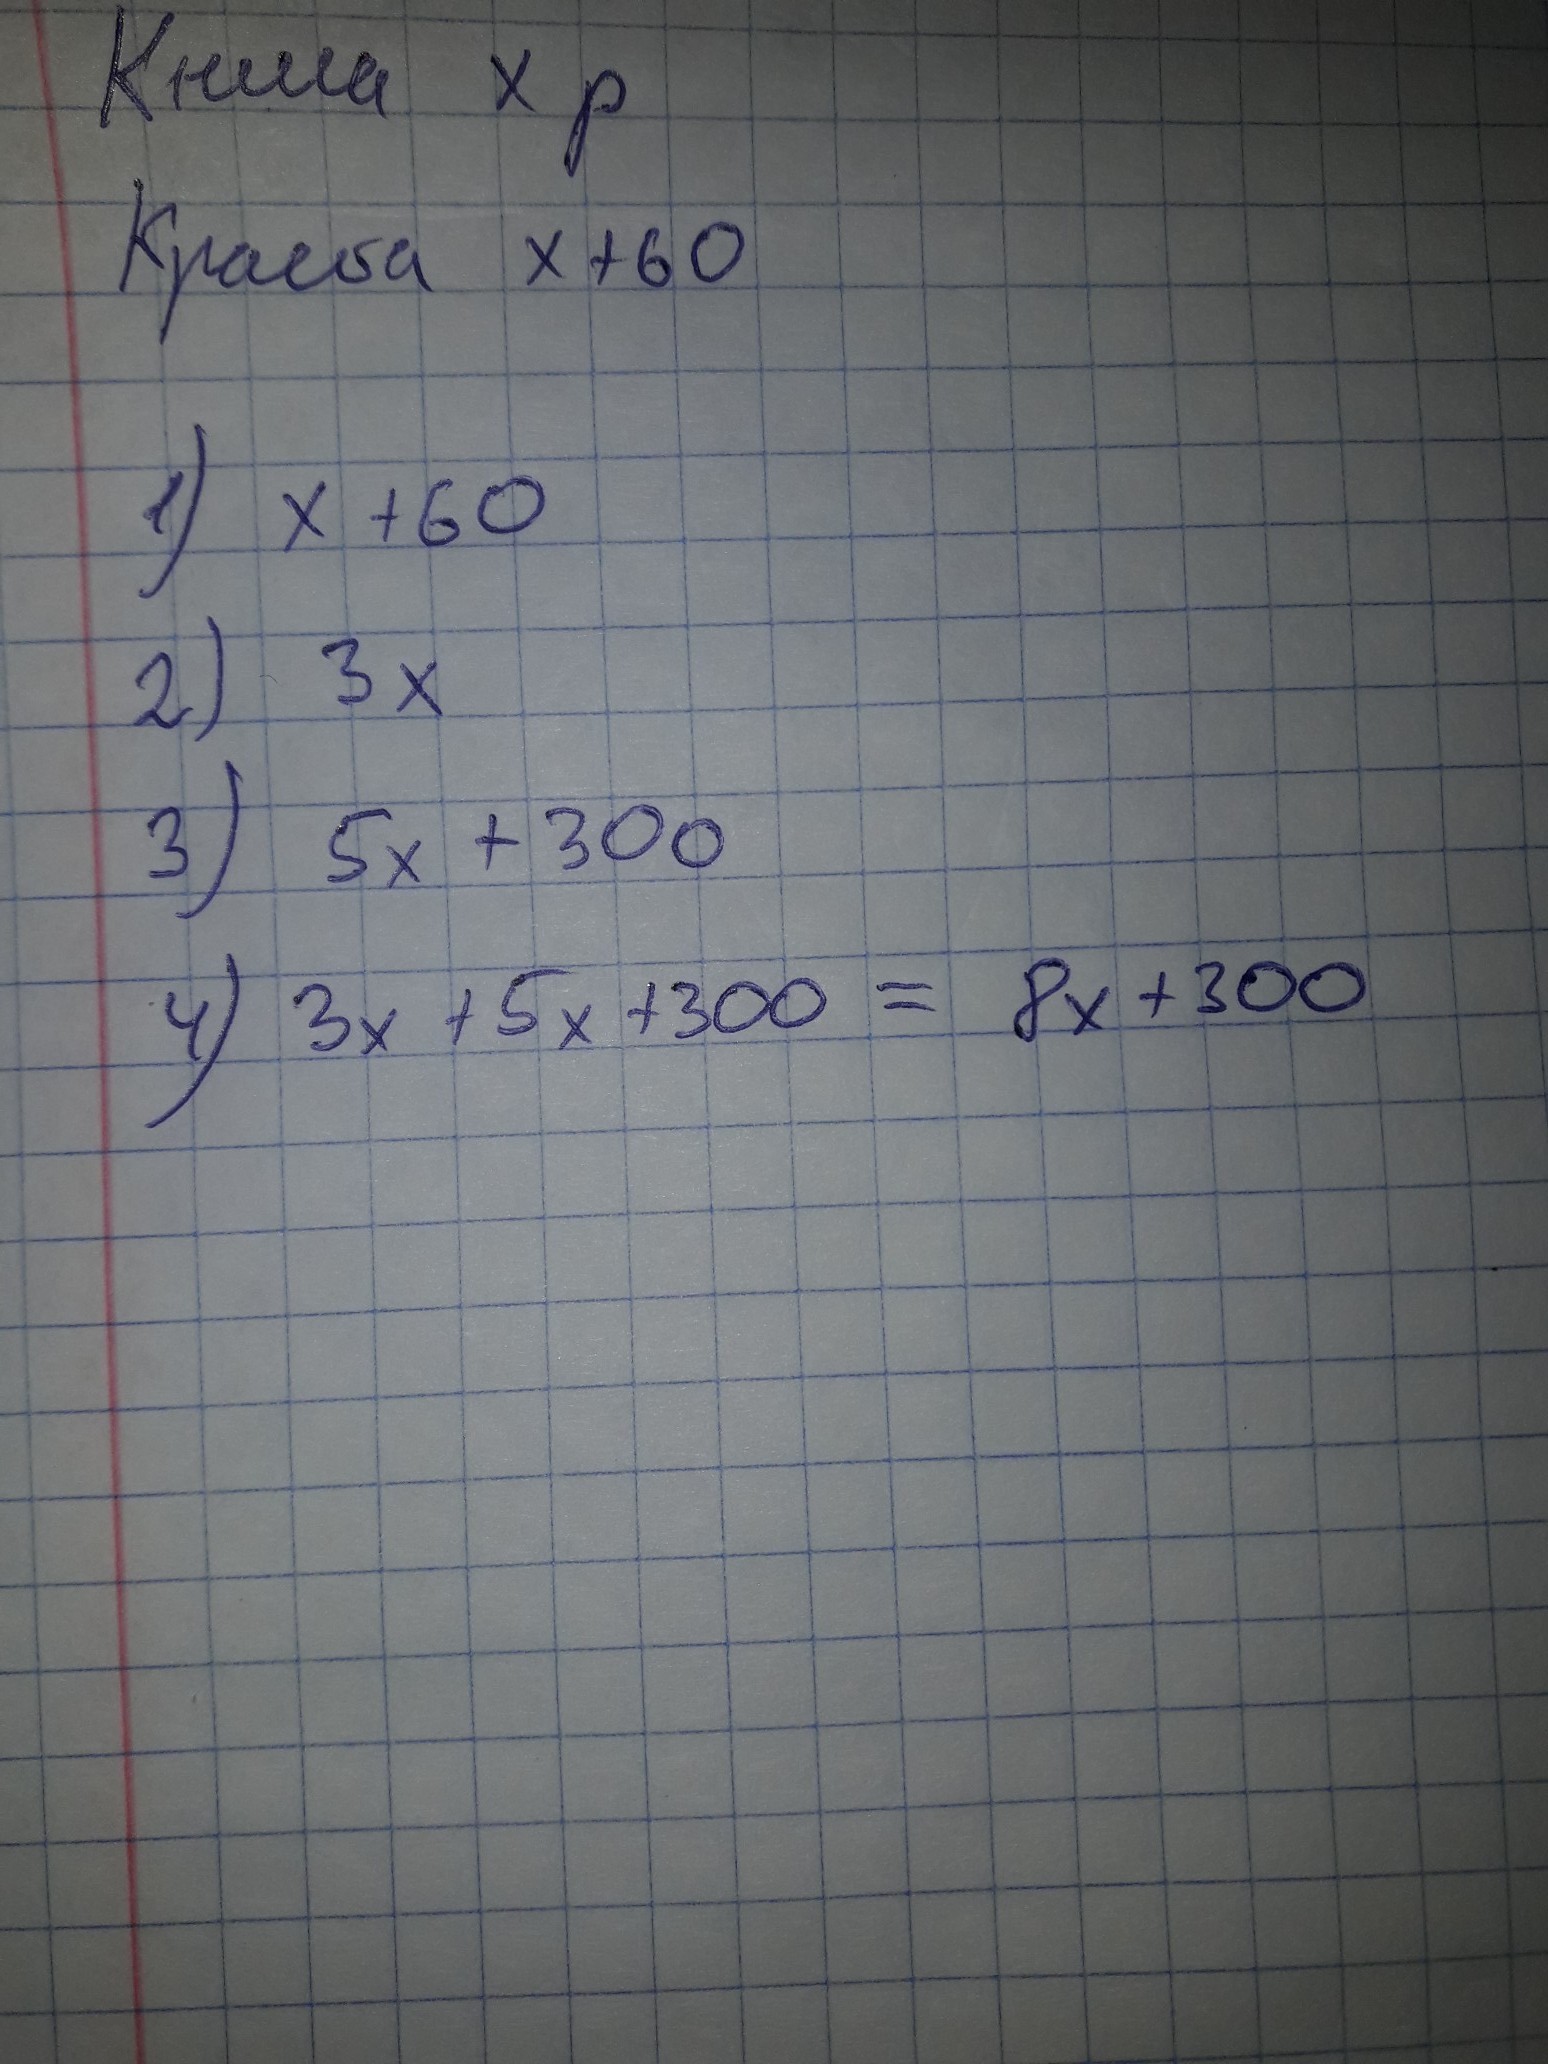 Книга х р
Краска х+60
1) х+60
2) 3х
3) 5х+300
4) 3х+5х+300 = 8х+300